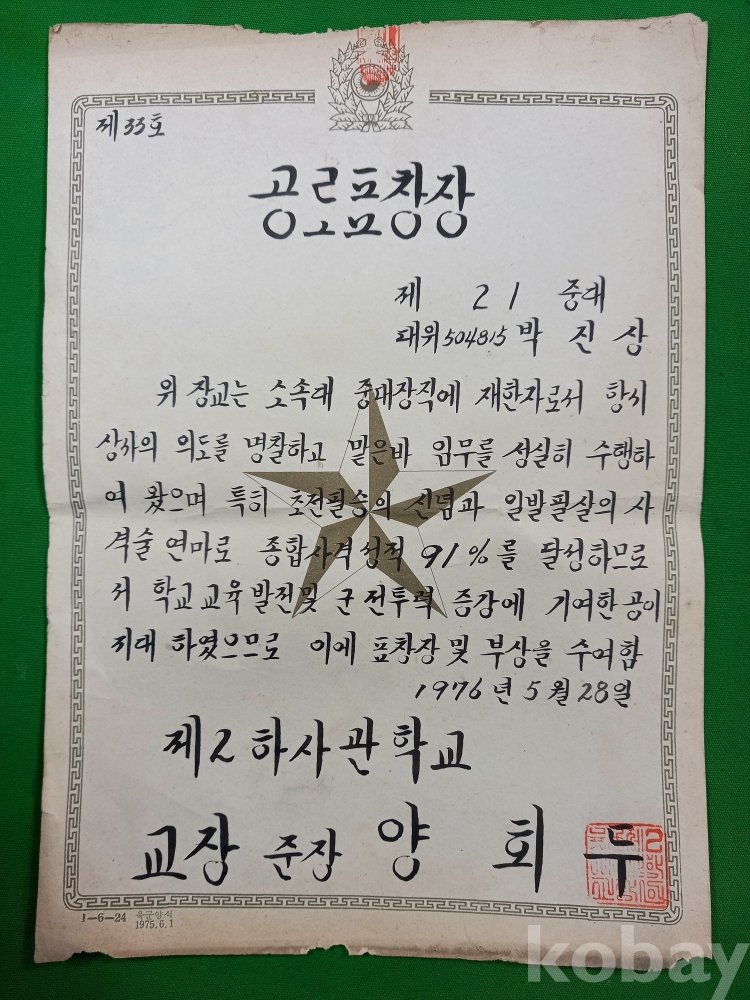 제33호
공로표창장
제 21 중대
대위 504815 박 진 상
위 장교는 소속대 중대장직에 재한자로서 항시
상사의 의도를 명찰하고 맡은바 임무를 성실히 수행하
여 왔으며 특히 초전필승의 신념과 일발필살의 사
격술 연마로 종합사격성적 91%를 달성하므로
서 학교교육발전및 군전투력 증강에 기여한공이
지대 하였으므로 이에 표창장 및 부상을 수여함
1976년 5월 28일
제2하사관학교
교장 준장 양 회 두
1-6-24 육군양식
1975.6.1
kobay